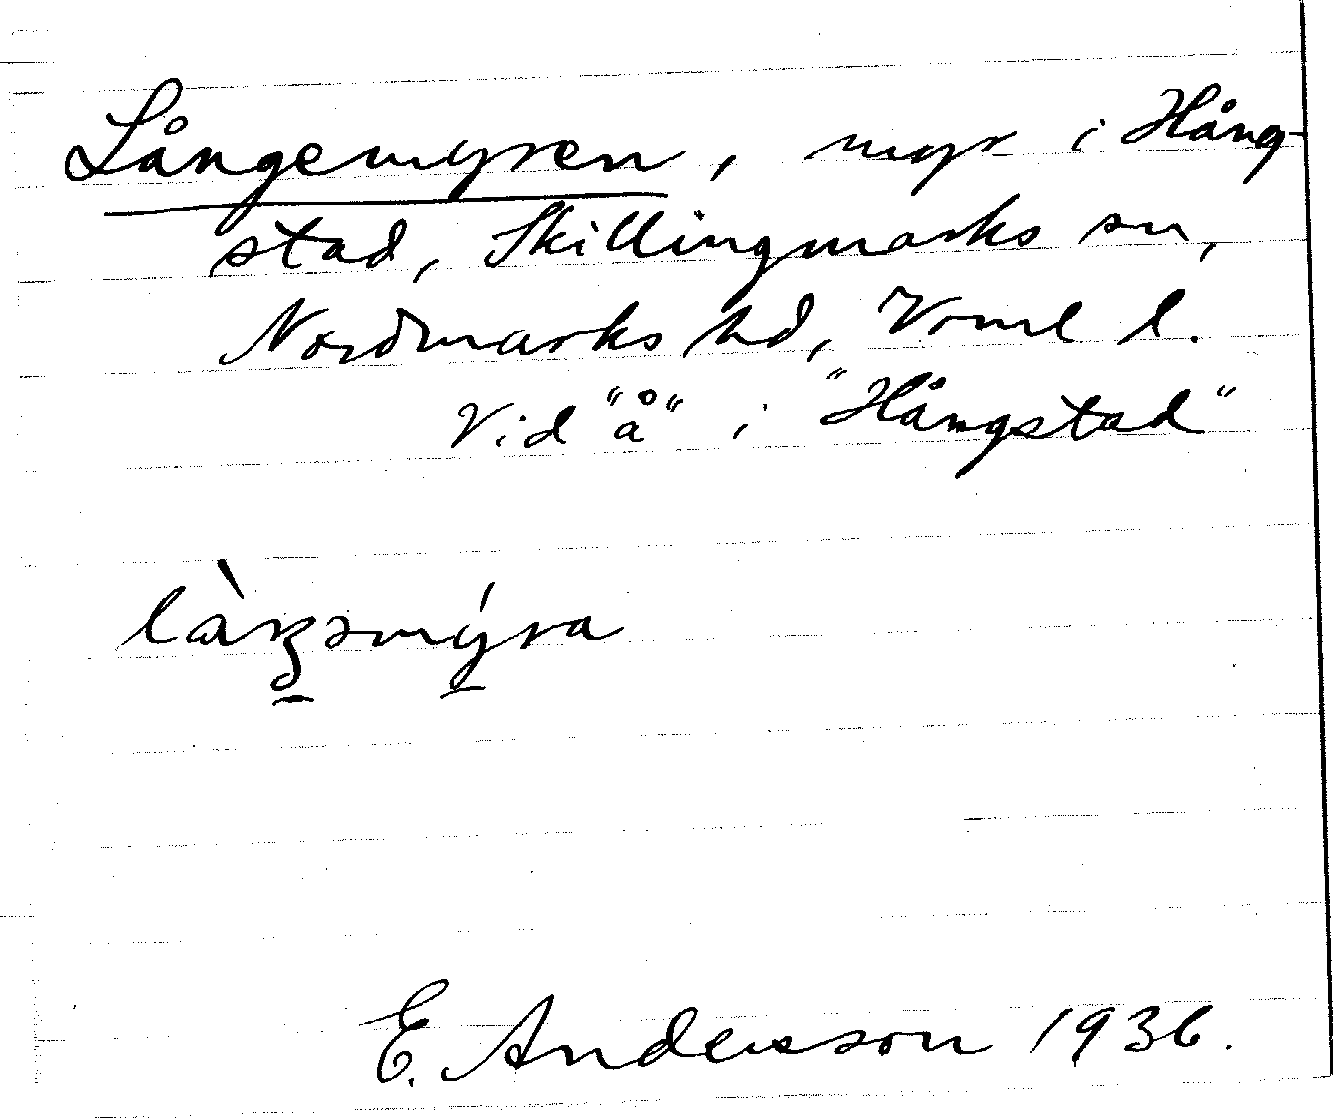 Långemyren, myr i Hång-
stad, Skillingmarks sn,
Nordmarks hd, Vrml l.
Vid "å" i "Hångstad"
làŋəmýra
E. Andersson 1936.